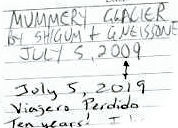 MUMMERY GLACIER
BY SHIGUM + G. NEISSONE
JULY 5, 2009
July 5, 2019
Viajero Perdido
Ten years!